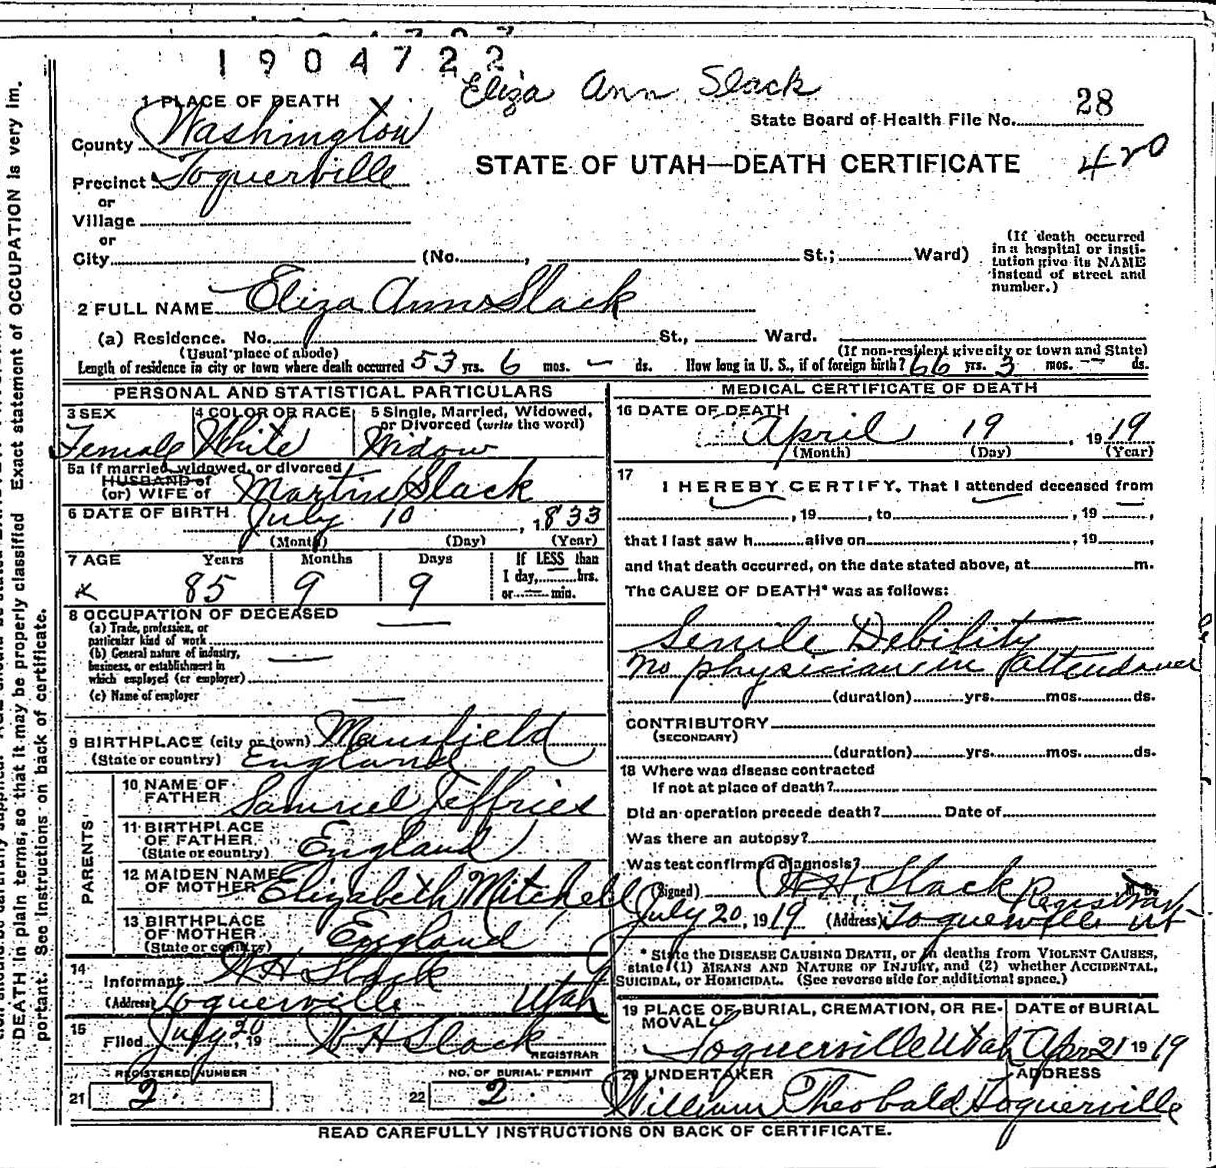 1904722
Eliza Ann Slack
1 PLACE OF DEATH X
State Board of Health File No. 28
County Washington
STATE OF UTAH—DEATH CERTIFICATE 420
Precinct Toquerville
or
Village
or
City (No. , St.; Ward)
(If death occurred in a hospital or insti-
tution give its NAME
instead of street and
number.)
2 FULL NAME Eliza Ann Slack
(a) Residence. No. St., Ward.
(Usual place of abode) (If non-resident give city or town and State)
Length of residence in city or town where death occurred 53 yrs. 6 mos. — ds. How long in U. S., if of foreign birth? 66 yrs. 3 mos. — ds.
PERSONAL AND STATISTICAL PARTICULARS
3 SEX 4 COLOR OR RACE 5 Single, Married, Widowed,
or Divorced (write the word)
Female White Widow
5a If married, widowed, or divorced
HUSBAND of
(or) WIFE of Martin Slack
6 DATE OF BIRTH July 10, 1833
(Month) (Day) (Year)
7 AGE Years Months Days If LESS than
1 day, hrs.
or — min.
x 85 9 9
8 OCCUPATION OF DECEASED
(a) Trade, profession, or
particular kind of work
(b) General nature of industry,
business, or establishment in
which employed (or employer)
(c) Name of employer
9 BIRTHPLACE (city or town) Mansfield
(State or country) England
PARENTS
10 NAME OF
FATHER Samuel Jeffries
11 BIRTHPLACE
OF FATHER
(State or country) England
12 MAIDEN NAME
OF MOTHER Elizabeth Mitchell
13 BIRTHPLACE
OF MOTHER
(State or country) England
14 Informant W H Slack
(Address) Toquerville Utah
15 Filed July 20, 19 W H Slack
REGISTRAR
REGISTERED NUMBER NO. OF BURIAL PERMIT
21 2 22 2
MEDICAL CERTIFICATE OF DEATH
16 DATE OF DEATH
April 19, 1919
(Month) (Day) (Year)
17 I HEREBY CERTIFY, That I attended deceased from
, 19 , to , 19 ,
that I last saw h alive on , 19 ,
and that death occurred, on the date stated above, at m.
The CAUSE OF DEATH* was as follows:
Senile Debility
no physician in attendance
(duration) yrs. mos. ds.
CONTRIBUTORY
(SECONDARY)
(duration) yrs. mos. ds.
18 Where was disease contracted
If not at place of death?
Did an operation precede death? Date of
Was there an autopsy?
Was test confirmed diagnosis?
(Signed) W H Slack Registrar, M. D.
July 20, 1919 (Address) Toquerville Ut
* State the DISEASE CAUSING DEATH, or in deaths from VIOLENT CAUSES,
state (1) MEANS AND NATURE OF INJURY, and (2) whether ACCIDENTAL,
SUICIDAL, or HOMICIDAL. (See reverse side for additional space.)
19 PLACE OF BURIAL, CREMATION, OR RE-
MOVAL DATE of BURIAL
Toquerville Utah Apr 21 1919
20 UNDERTAKER ADDRESS
William Theobald Toquerville
READ CAREFULLY INSTRUCTIONS ON BACK OF CERTIFICATE.
DEATH in plain terms, so that it may be properly classified. Exact statement of OCCUPATION is very im-
portant. See instructions on back of certificate.